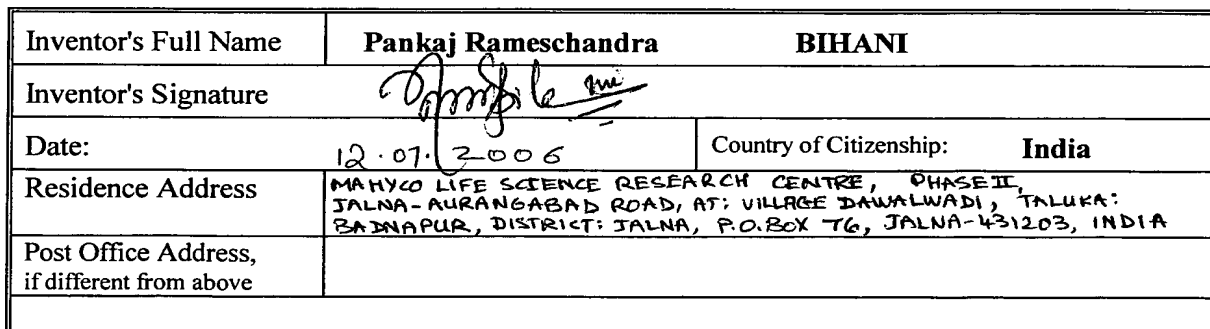 Inventor's Full Name Pankaj Rameschandra BIHANI
Inventor's Signature
Date: 12.07.2006 Country of Citizenship: India
Residence Address MAHYCO LIFE SCIENCE RESEARCH CENTRE, PHASE II,
JALNA-AURANGABAD ROAD, AT: VILLAGE DAWALWADI, TALUKA:
BADNAPUR, DISTRICT: JALNA, P.O.BOX 76, JALNA-431203, INDIA
Post Office Address,
if different from above